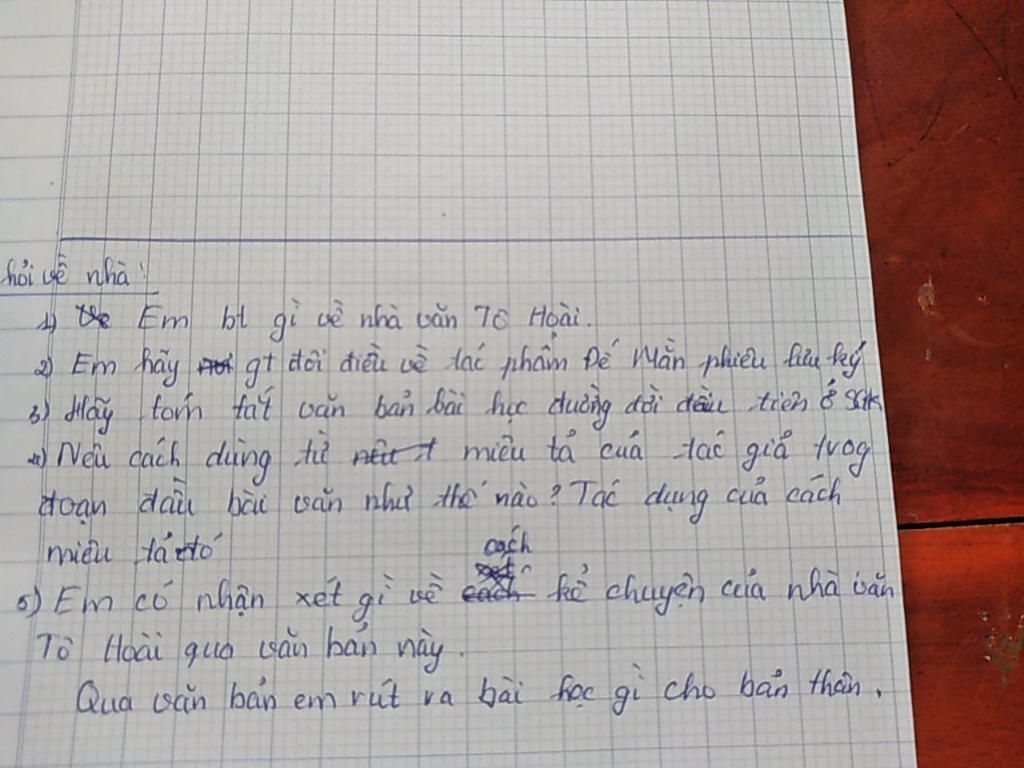 hỏi về nhà:
1) Em bt gì về nhà văn Tô Hoài.
2) Em hãy gt đôi điều về tác phẩm Dế Mèn phiêu lưu ký
3) Hãy tóm tắt văn bản bài học đường đời đầu tiên ở SGK
4) Nêu cách dùng từ miêu tả của tác giả trog
đoạn đầu bài văn như thế nào? Tác dụng của cách
miêu tả đó
cách
5) Em có nhận xét gì về kể chuyện của nhà văn
Tô Hoài qua văn bản này.
Qua văn bản em rút ra bài học gì cho bản thân.